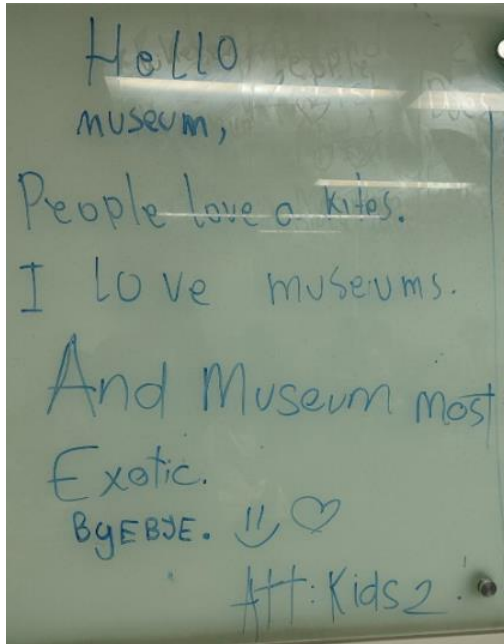 Hello
museum,
People love a kites.
I love museums.
And Museum most
Exotic.
ByEBYE.
Att: Kids 2.